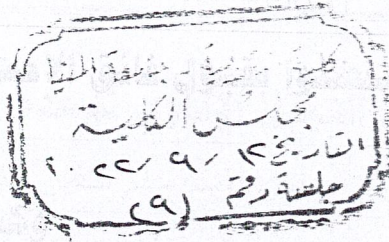 كلية
جامعة المنيا
مجلس الكلية
التاريخ ١٢ / ٩ / ٢٠٢٢
جلسة رقم (٢٩)